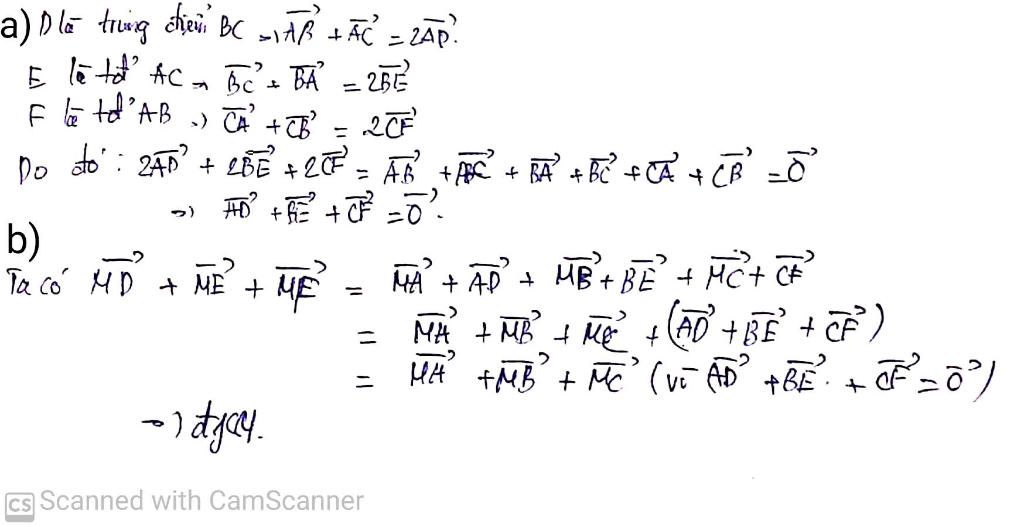 a) D là trung điểm BC ⇒ \overrightarrow{AB} + \overrightarrow{AC} = 2\overrightarrow{AD}.
E là tđ AC ⇒ \overrightarrow{BC} + \overrightarrow{BA} = 2\overrightarrow{BE}
F là tđ AB ⇒ \overrightarrow{CA} + \overrightarrow{CB} = 2\overrightarrow{CF}
Do đó : 2\overrightarrow{AD} + 2\overrightarrow{BE} + 2\overrightarrow{CF} = \overrightarrow{AB} + \overrightarrow{AC} + \overrightarrow{BA} + \overrightarrow{BC} + \overrightarrow{CA} + \overrightarrow{CB} = \overrightarrow{0}
⇒ \overrightarrow{AD} + \overrightarrow{BE} + \overrightarrow{CF} = \overrightarrow{0}.
b)
Ta có \overrightarrow{MD} + \overrightarrow{ME} + \overrightarrow{MF} = \overrightarrow{MA} + \overrightarrow{AD} + \overrightarrow{MB} + \overrightarrow{BE} + \overrightarrow{MC} + \overrightarrow{CF}
= \overrightarrow{MA} + \overrightarrow{MB} + \overrightarrow{MC} + (\overrightarrow{AD} + \overrightarrow{BE} + \overrightarrow{CF})
= \overrightarrow{MA} + \overrightarrow{MB} + \overrightarrow{MC} (vì \overrightarrow{AD} + \overrightarrow{BE} + \overrightarrow{CF} = \overrightarrow{0})
⇒ đpcm.
CS Scanned with CamScanner